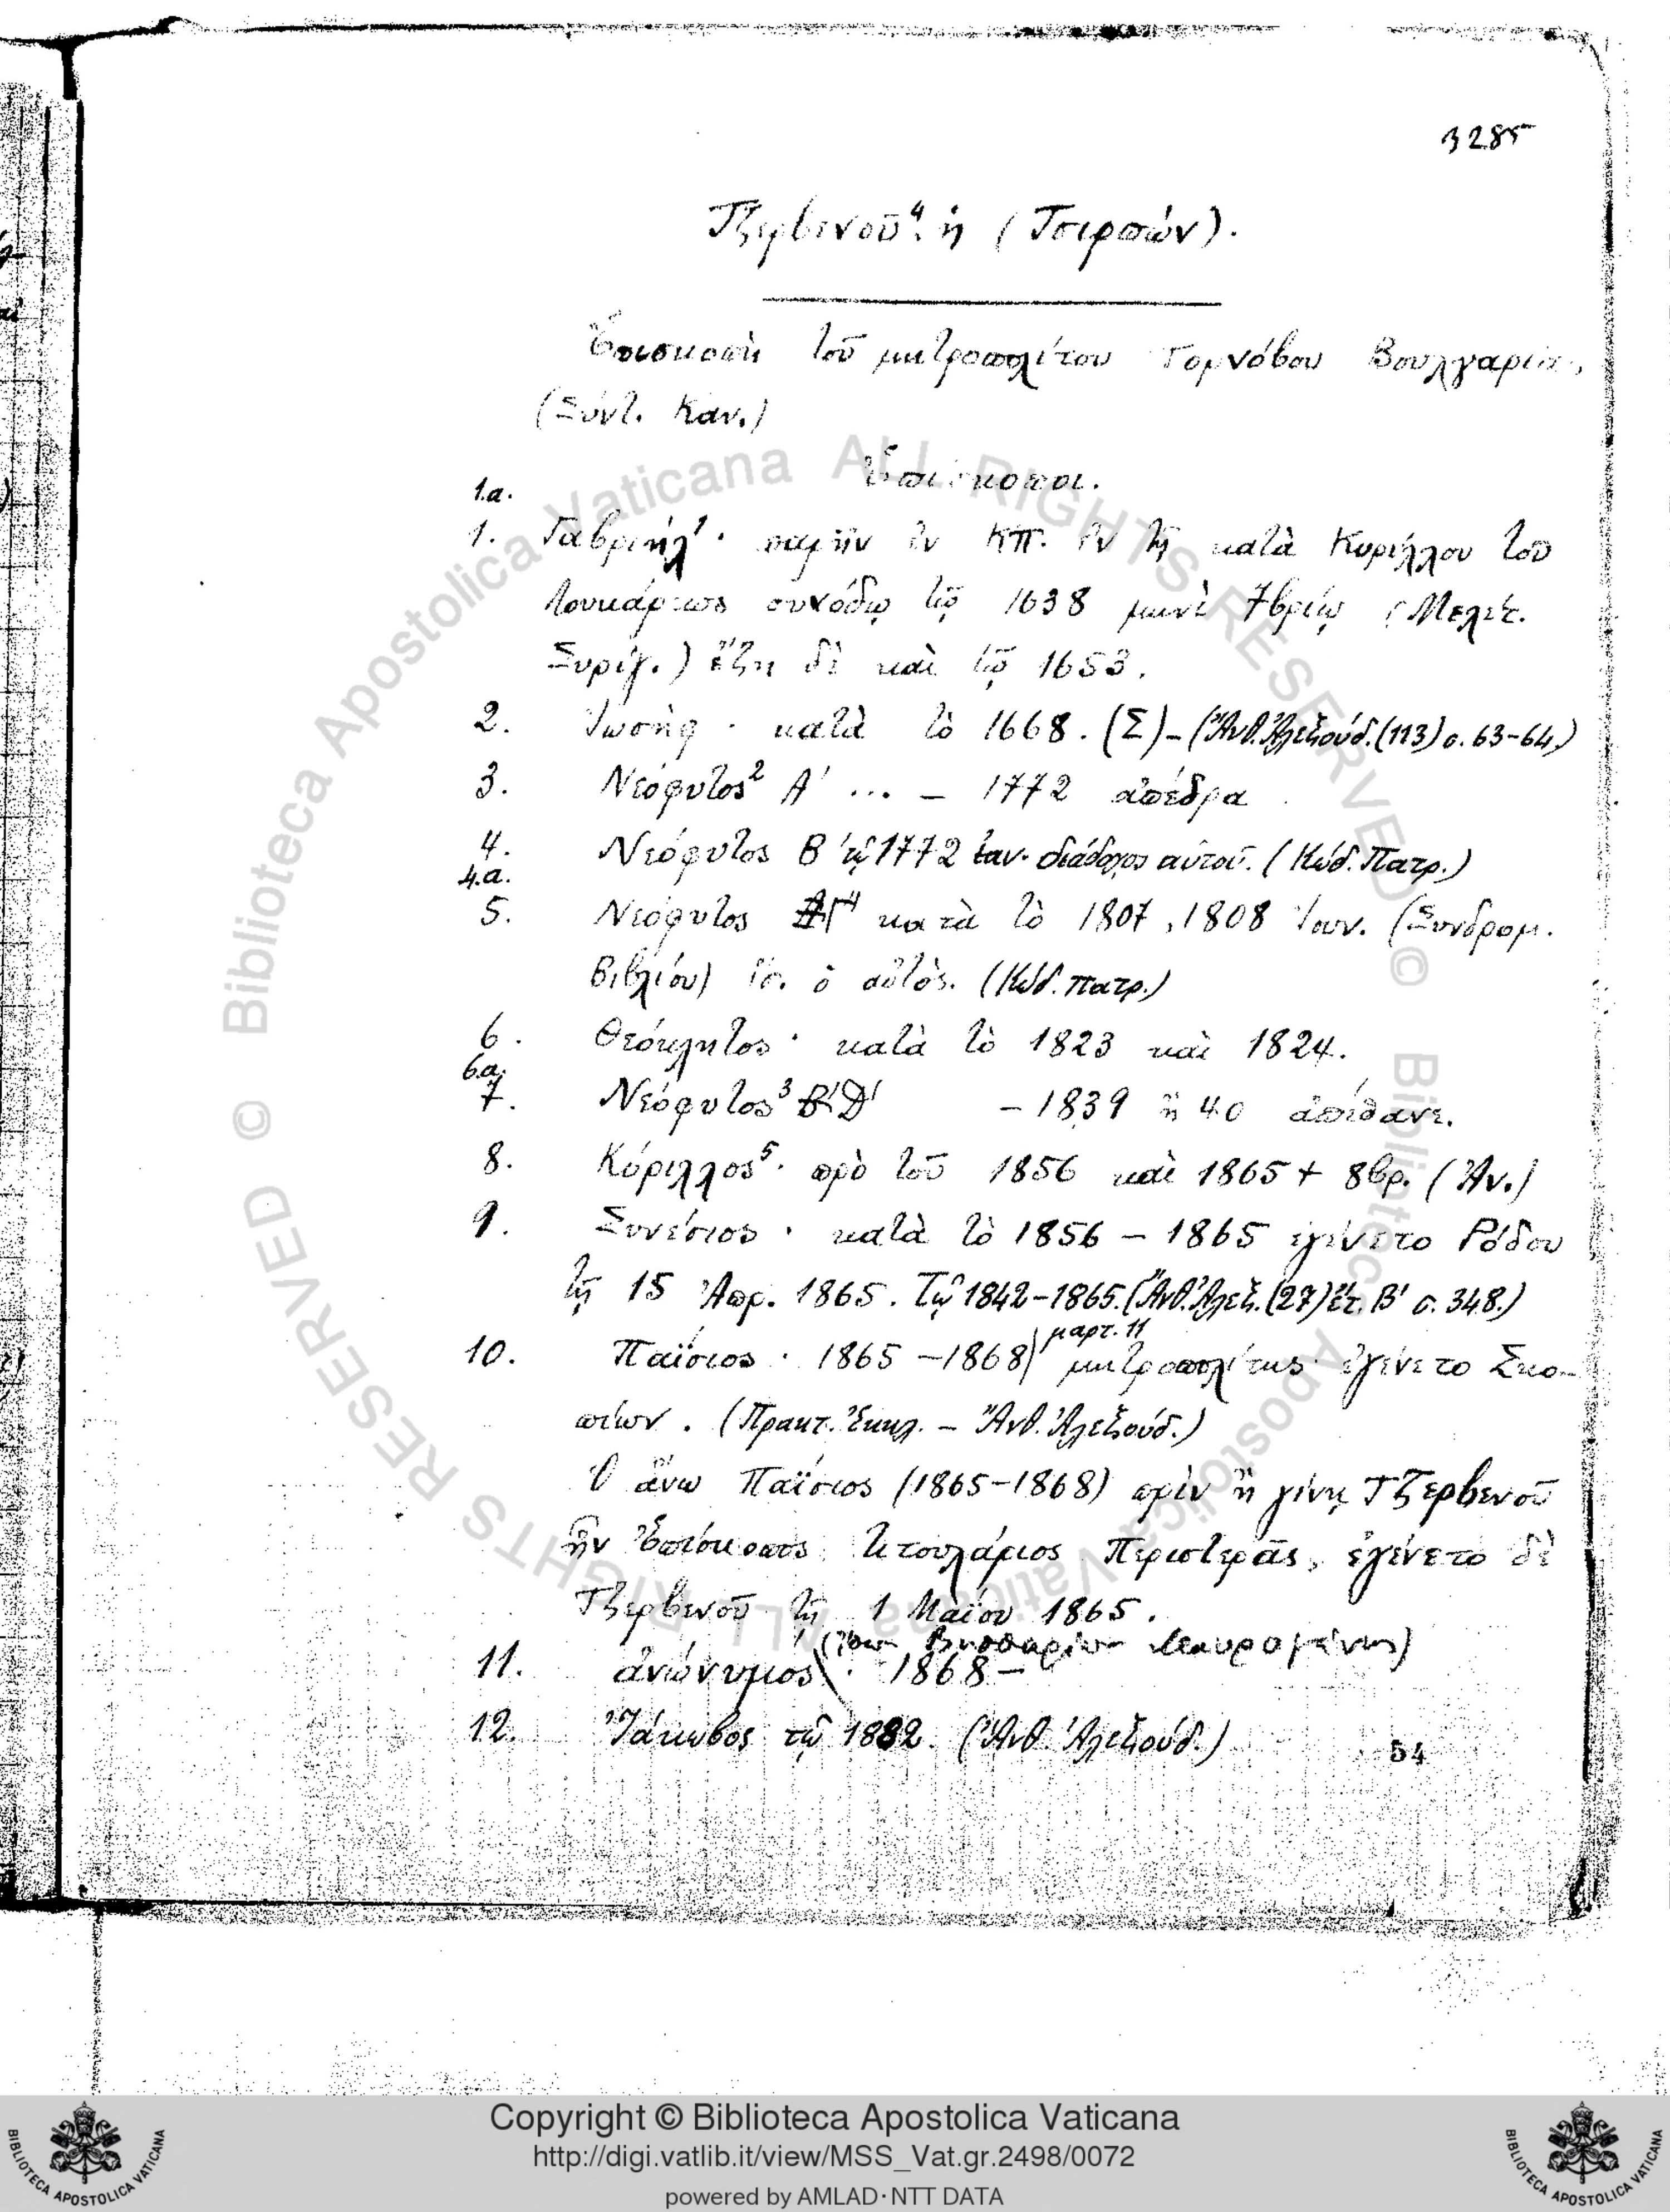 3285
Τζερβενοῦ⁴· ἡ (Τσερπών).
Ἐπισκοπὴ τοῦ μητροπολίτου Τορνόβου Βουλγαρίας,
(Σύντ. Καν.)
Ἐπίσκοποι.
1.α.
1. Γαβριήλ¹· παρῆν ἐν ΚΠ. ἐν τῇ κατὰ Κυρίλλου τοῦ
Λουκάρεως συνόδῳ τῷ 1638 μηνὶ 7βρίῳ (Μελέτ.
Συρίγ.) ἔζη δὲ καὶ τῷ 1653.
2. Ἰωσὴφ· κατὰ τὸ 1668. (Σ)-(Ἄνθ. Ἀλεξούδ. (113) σ. 63-64.)
3. Νεόφυτος² Α' ... - 1772 ἀπέδρα
4. Νεόφυτος Β' τῷ 1772 Ἰαν. διάδοχος αὐτοῦ. (Κώδ. Πατρ.)
4.α.
5. Νεόφυτος Γ' κατὰ τὸ 1807, 1808 Ἰουν. (Συνδρομ.
Βιβλίου) ἴσ. ὁ αὐτός. (Κώδ. Πατρ.)
6. Θεόκλητος· κατὰ τὸ 1823 καὶ 1824.
6.α.
7. Νεόφυτος³ Β' Δ' - 1839 ἢ 40 ἀπέθανε.
8. Κύριλλος⁵· πρὸ τοῦ 1856 καὶ 1865 + 8βρ. (Ἀν.)
9. Συνέσιος· κατὰ τὸ 1856 - 1865 ἐγένετο Ρόδου
τῇ 15 Ἀπρ. 1865. Τῷ 1842-1865. (Ἄνθ. Ἀλεξ. (27) ἔτ. Β' σ. 348.)
μαρτ. 11
10. Παΐσιος· 1865 - 1868) μητροπολίτης ἐγένετο Σκο-
πίων. (Πρακτ. Ἐκκλ. - Ἄνθ. Ἀλεξούδ.)
Ὁ ἄνω Παΐσιος (1865-1868) πρὶν ἢ γίνῃ Τζερβενοῦ
ἦν Ἐπίσκοπος τιτουλάριος Περιστερᾶς, ἐγένετο δὲ
Τζερβενοῦ τῇ 1 Μαΐου 1865.
Μαυρογένης)
11. ἀνώνυμος· 1868 -
12. Ἰάκωβος τῷ 1882. (Ἄνθ. Ἀλεξούδ.)
54
Copyright © Biblioteca Apostolica Vaticana
http://digi.vatlib.it/view/MSS_Vat.gr.2498/0072
powered by AMLAD·NTT DATA
BIBLIOTECA APOSTOLICA VATICANA
BIBLIOTECA APOSTOLICA VATICANA
© Biblioteca Apostolica Vaticana ALL RIGHTS RESERVED © Biblioteca Apostolica Vaticana ALL RIGHTS RESERVED